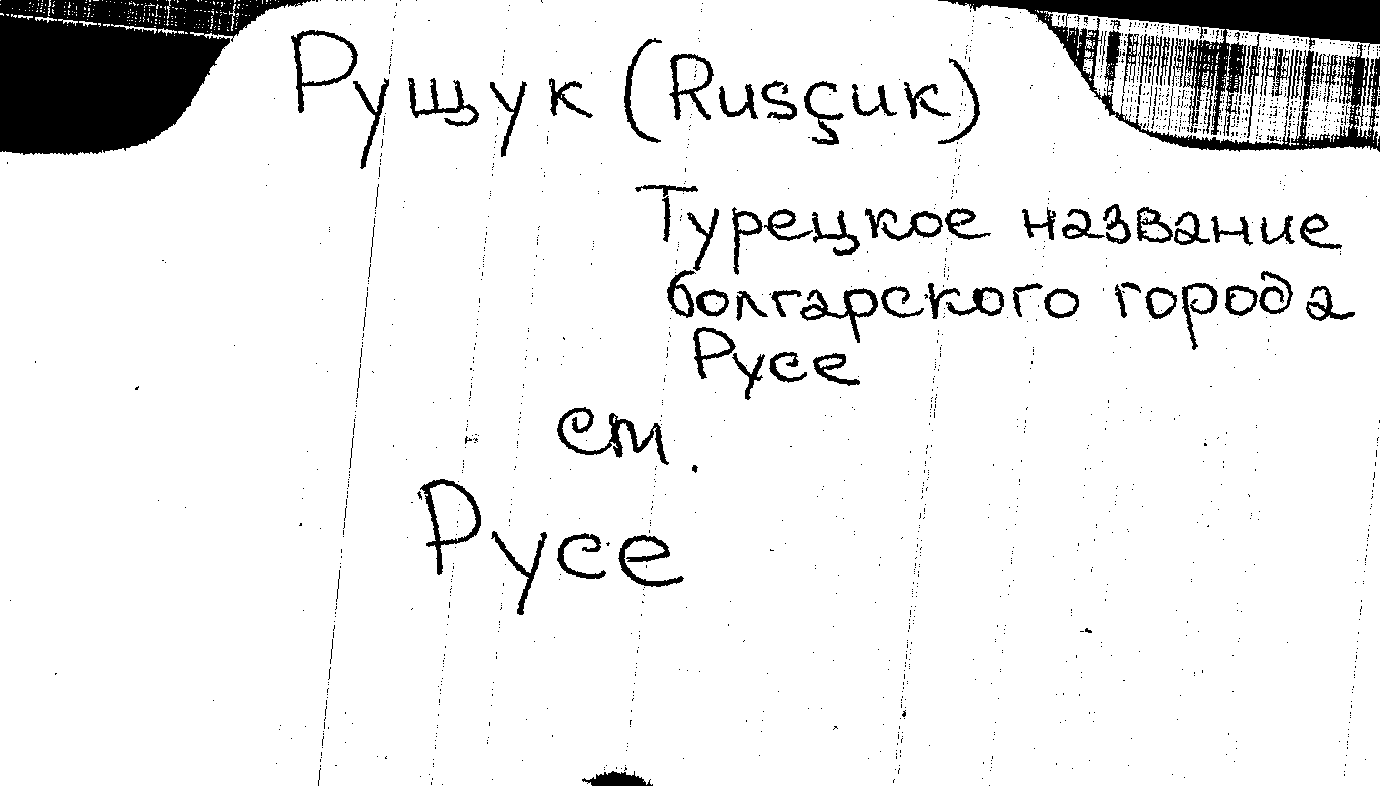 Рущук (Rusçuk)
Турецкое название
болгарского города
Русе
см.
Русе